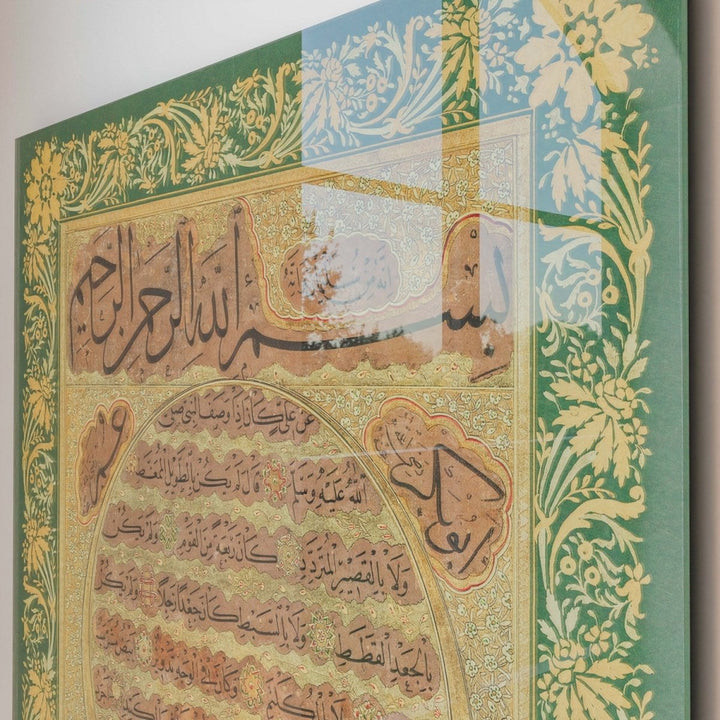 بِسْمِ اللهِ الرَّحْمٰنِ الرَّحِيمِ
ابو بكر
عمر
عن علي كان اذا وصف النبي صلى
الله عليه وسلم قال لم يكن بالطويل الممغط
ولا بالقصير المتردد كان ربعة من القوم ولم يكن
بالجعد القطط ولا بالسبط كان جعدا رجلا ولم يكن
وكان في الوجه تدوير